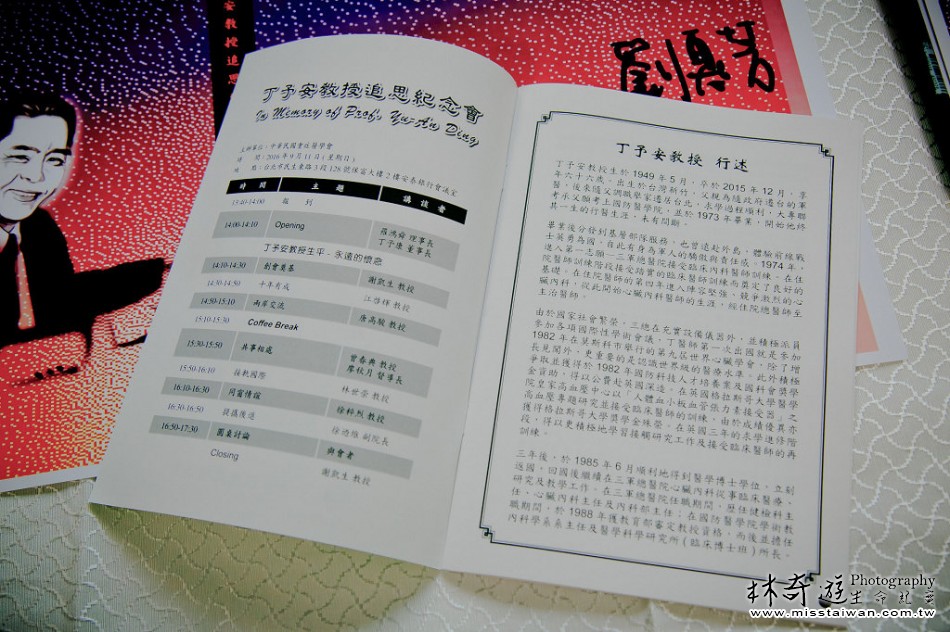 安教授追思
劉真芳
丁予安教授追思紀念會
In Memory of Prof. Yu-An Ding
主辦單位：中華民國重症醫學會
時 間：2016年9月11日(星期日)
地 點：台北市民生東路3段128號保富大樓2樓安泰銀行會議室
時 間 主 題 講談者
13:40-14:00 報 到
14:00-14:10 Opening 羅鴻舜 理事長
丁予康 董事長
丁予安教授生平 - 永遠的懷念
14:10-14:30 創會奠基 謝凱生 教授
14:30-14:50 十年有成 江啓輝 教授
14:50-15:10 兩岸交流 唐高駿 教授
15:10-15:30 Coffee Break
15:30-15:50 共事相處 曾春典 教授
廖秋月 督導長
15:50-16:10 接軌國際 林世崇 教授
16:10-16:30 同窗情誼 徐粹烈 教授
16:30-16:50 提攜後進 徐浩維 副院長
16:50-17:30 圓桌討論 與會者
Closing 謝凱生 教授
丁予安教授 行述
丁予安教授生於 1949 年 5 月，卒於 2015 年 12 月，享
年六十六歲。出生於台灣新竹，父親為隨政府遷台的軍
醫，後來隨父調職舉家遷居台北。求學過程順利，大專聯
考承父願考上國防醫學院，並於 1973 年畢業，開始他終
其一生的行醫生涯，未有間斷。
畢業後分發到基層部隊服務，也曾遠赴外島，體驗前線戰
士英勇為國，自此有身為軍人的驕傲與責任感。1974 年，
進入第一志願—三軍總醫院接受臨床內科醫師訓練。在住
院醫師訓練階段接受踏實的臨床醫師訓練而奠定了良好的
基礎。在住院醫師的第四年進入陣容堅強、競爭激烈的心
臟內科，從此開始心臟內科醫師的生涯，經住院總醫師至
主治醫師。
由於國家社會繁榮，三總在充實設備儀器外，並積極派員
參加各項國際性學術會議，丁醫師第一次出國就是參加
1982 年在莫斯科市舉行的第九屆世界心臟學會，除了增
長見聞外，更重要的是認識世界級的醫療水準。此外積極
爭取並獲得於 1982 年國防科技人才培養案及國科會獎學
金資助，得以公費赴英國深造。在英國格拉斯哥大學醫學
院皇家高血壓中心以「人體血小板血管張力素接受器」之
高血壓專題研究並接受臨床醫師的訓練。由於成績優異亦
獲得格拉斯哥大學獎學金殊榮。在英國三年的求學進修階
段，得以更積極地學習接觸研究工作及接受臨床醫師的再
訓練。
三年後，於 1985 年 6 月順利地得到醫學博士學位，立刻
返國，回國後繼續在三軍總醫院心臟內科從事臨床醫療、
研究及教學工作。在三軍總醫院任職期間，歷任健檢科主
任、心臟內科主任及內科部主任；在國防醫學院學術教
職期間，於 1988 年獲教育部審定教授資格，而後並擔任
內科學系系主任及醫學科學研究所(臨床博士班)所長。
林奇遊 Photography
生命紀要
www.misstaiwan.com.tw